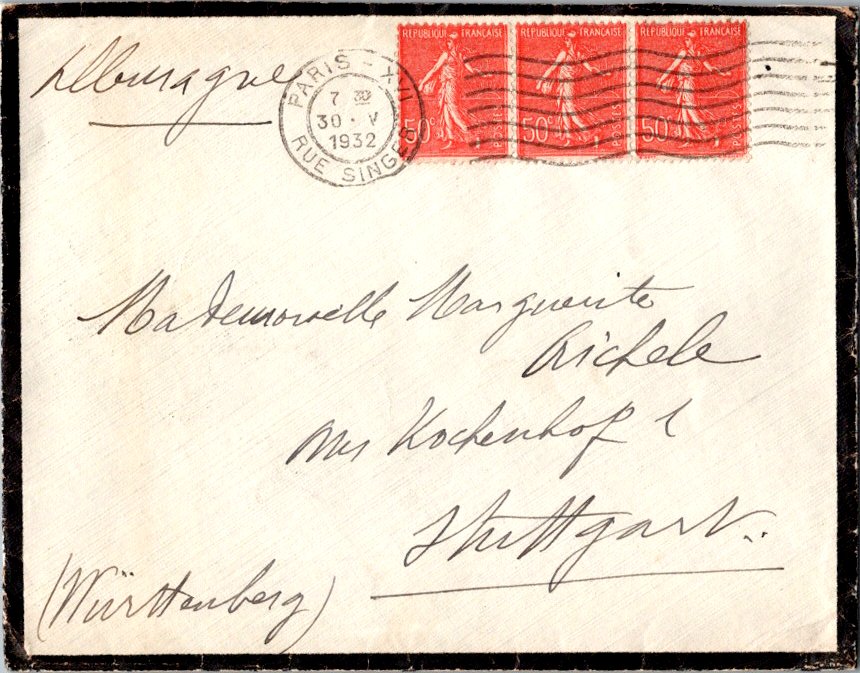 Allemagne
PARIS - XVI
7 30
30 · V
1932
RUE SINGER
REPUBLIQUE FRANÇAISE
50c
POSTES
REPUBLIQUE FRANÇAISE
50c
POSTES
REPUBLIQUE FRANÇAISE
50c
POSTES
Mademoiselle Marguerite
Kochenhof 1
Stuttgart
(Württenberg)